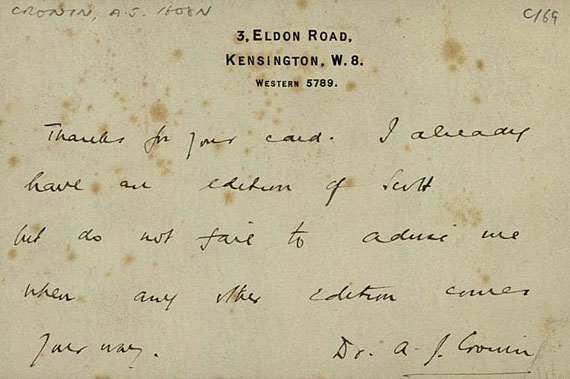 CRONIN, A.J.
C169
3, ELDON ROAD,
KENSINGTON, W. 8.
WESTERN 5789.
Thanks for your card. I already
have an edition of Scott
but do not fail to advise me
when any other edition comes
your way.
Dr. A. J. Cronin